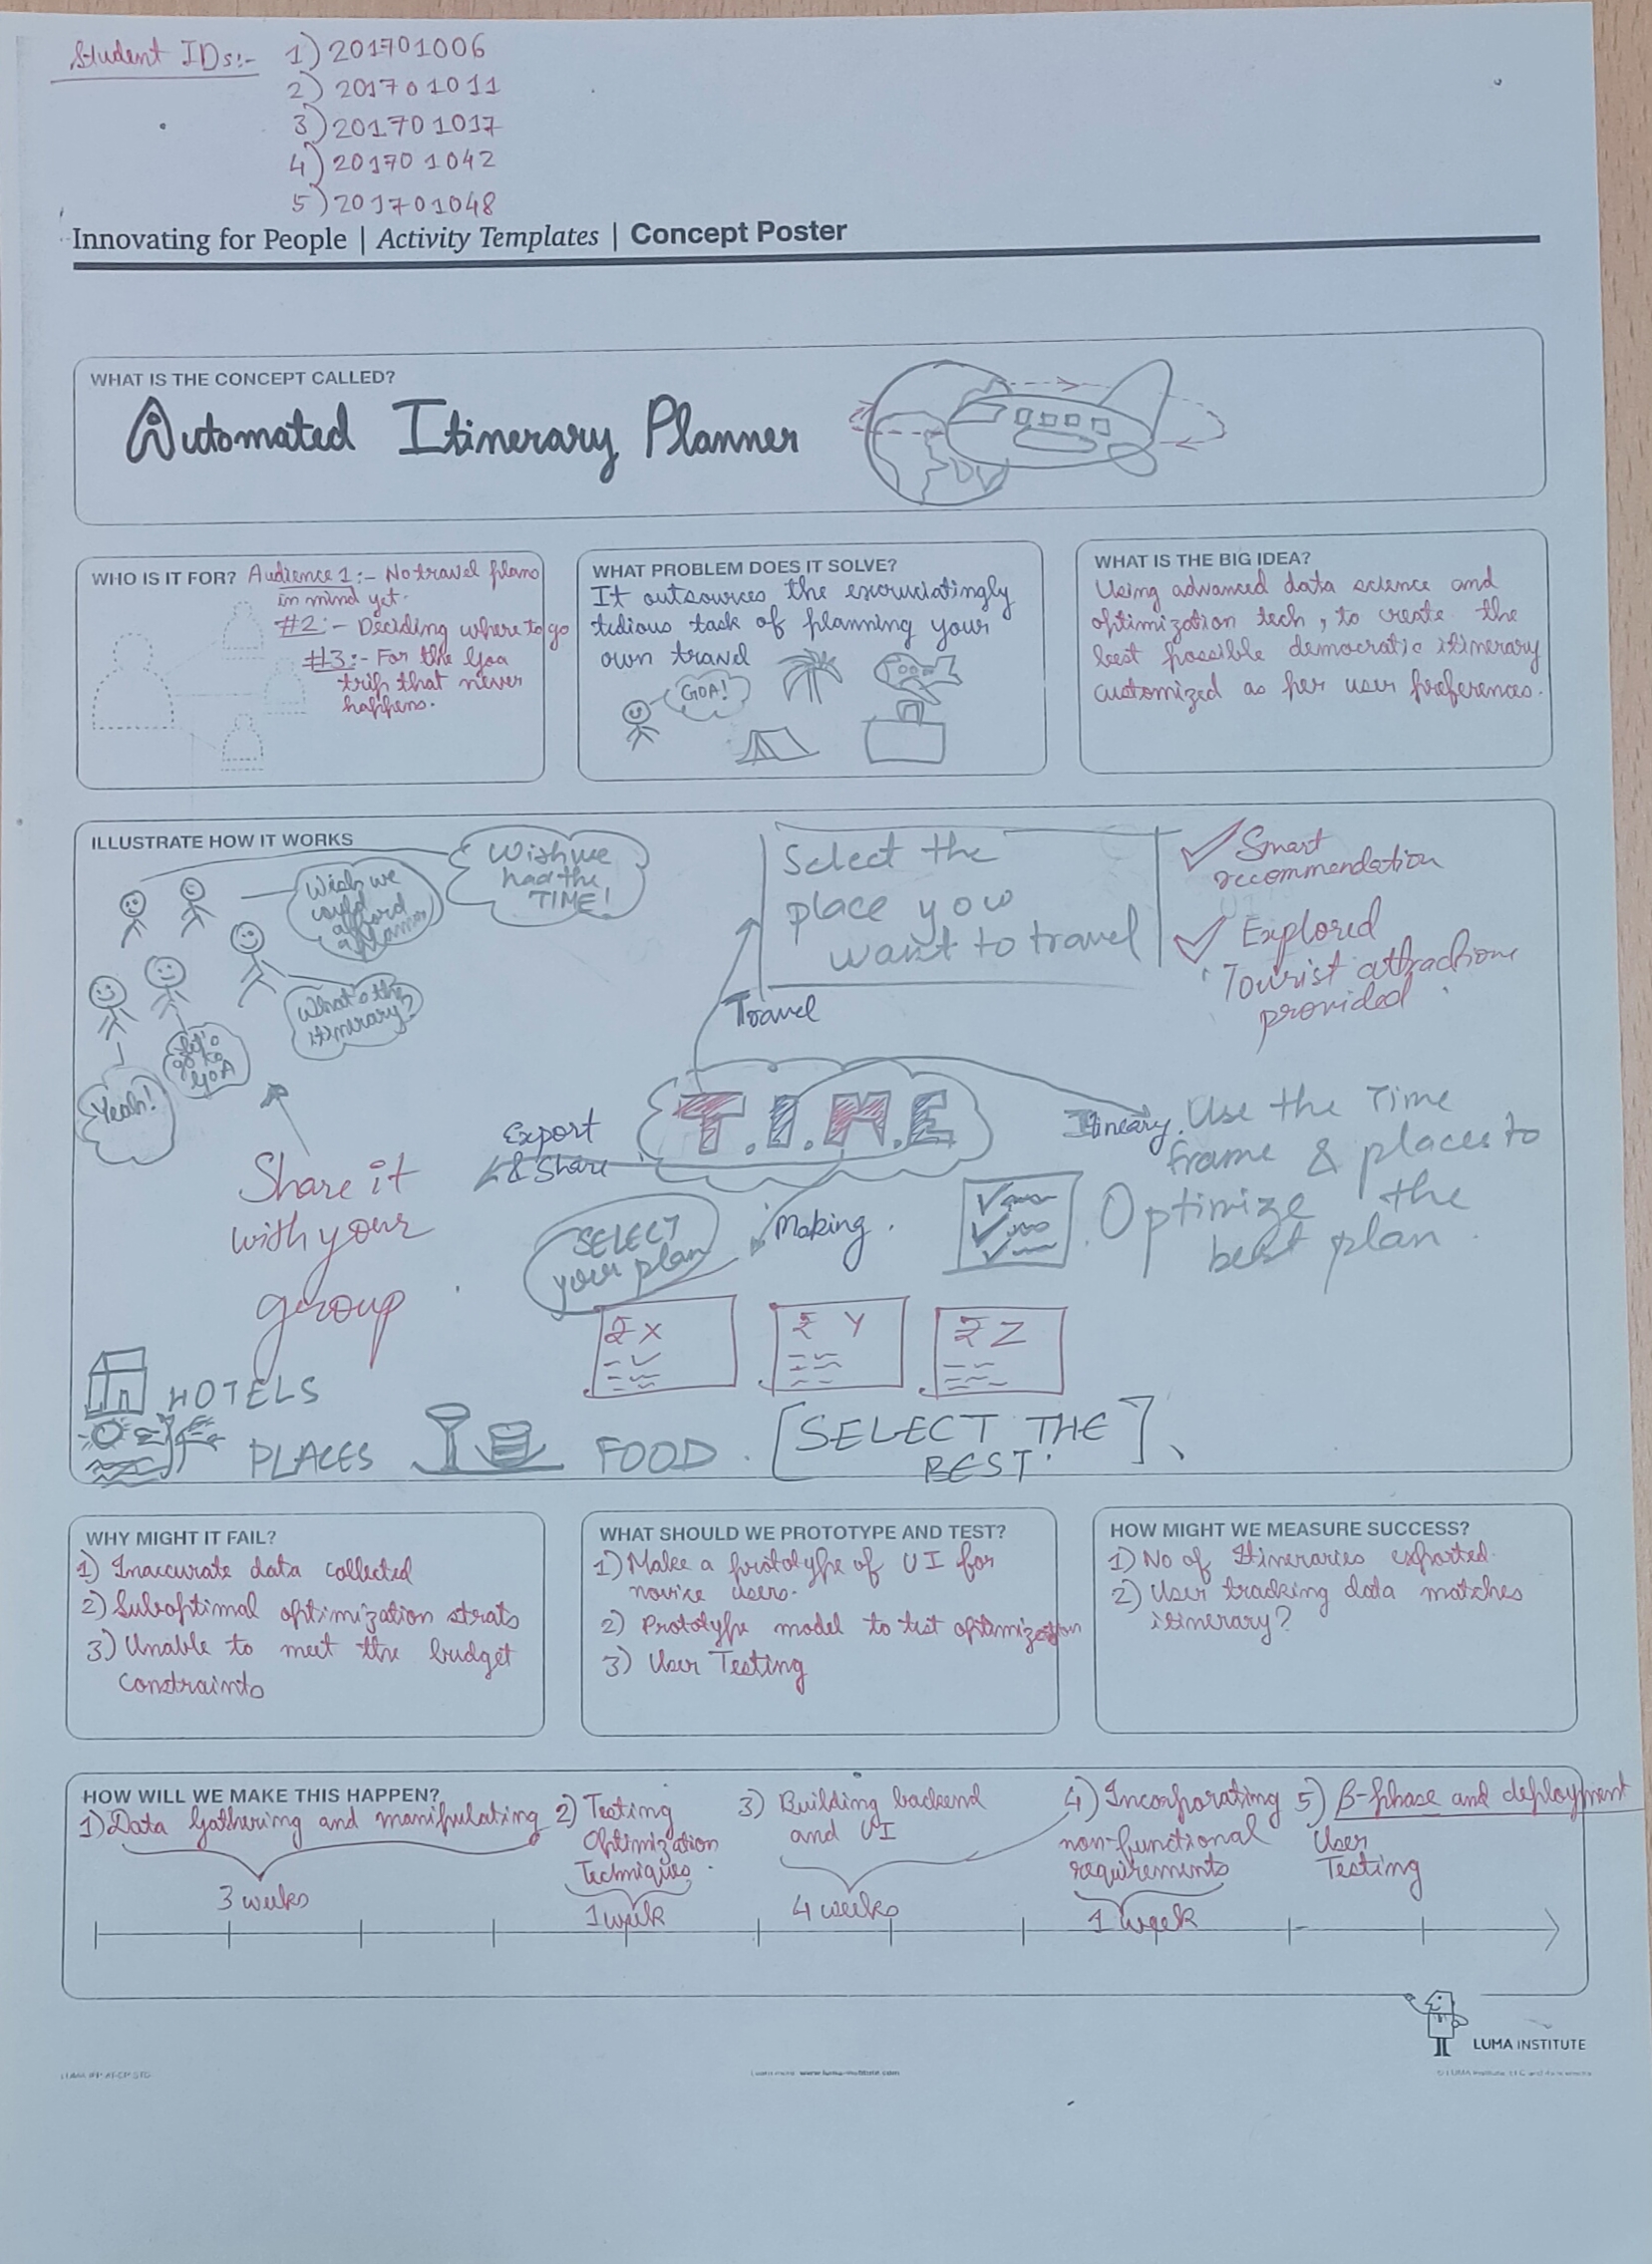 Student IDs:- 1) 201701006
2) 201701011
3) 201701017
4) 201701042
5) 201701048
Innovating for People | Activity Templates | Concept Poster
WHAT IS THE CONCEPT CALLED?
Automated Itinerary Planner
WHO IS IT FOR? Audience 1:- No travel plans
in mind yet.
#2:- Deciding where to go
#3:- For the Goa
trip that never
happens.
WHAT PROBLEM DOES IT SOLVE?
It outsources the excruciatingly
tidious task of planning your
own travel
GOA!
WHAT IS THE BIG IDEA?
Using advanced data science and
optimization tech, to create the
best possible democratic itinerary
customized as per user preferences.
ILLUSTRATE HOW IT WORKS
Wish we
had the
TIME!
Wish we
could
afford
a
What's the
itinerary?
Let's
go to
GOA
Yeah!
Select the
place you
want to travel
Smart
recommendation
Explored
Tourist attractions
provided
Travel
T.I.M.E
Export
& Share
Share it
with your
group
Itineary. Use the Time
frame & places to
Optimize the
best plan.
Making.
SELECT
your plan
₹ X
₹ Y
₹ Z
HOTELS
PLACES
FOOD.
[SELECT THE
BEST.]
WHY MIGHT IT FAIL?
1) Inaccurate data collected
2) Suboptimal optimization strats
3) Unable to meet the budget
constraints
WHAT SHOULD WE PROTOTYPE AND TEST?
1) Make a prototype of UI for
novice users.
2) Prototype model to test optimization
3) User Testing
HOW MIGHT WE MEASURE SUCCESS?
1) No of Itineraries exported.
2) User tracking data matches
itinerary?
HOW WILL WE MAKE THIS HAPPEN?
1) Data Gathering and manipulating
3 weeks
2) Testing
Optimization
Techniques.
1 week
3) Building backend
and UI
4 weeks
4) Incorporating
non-functional
requirements
1 week
5) β-phase and deployment
User
Testing
LUMA INSTITUTE